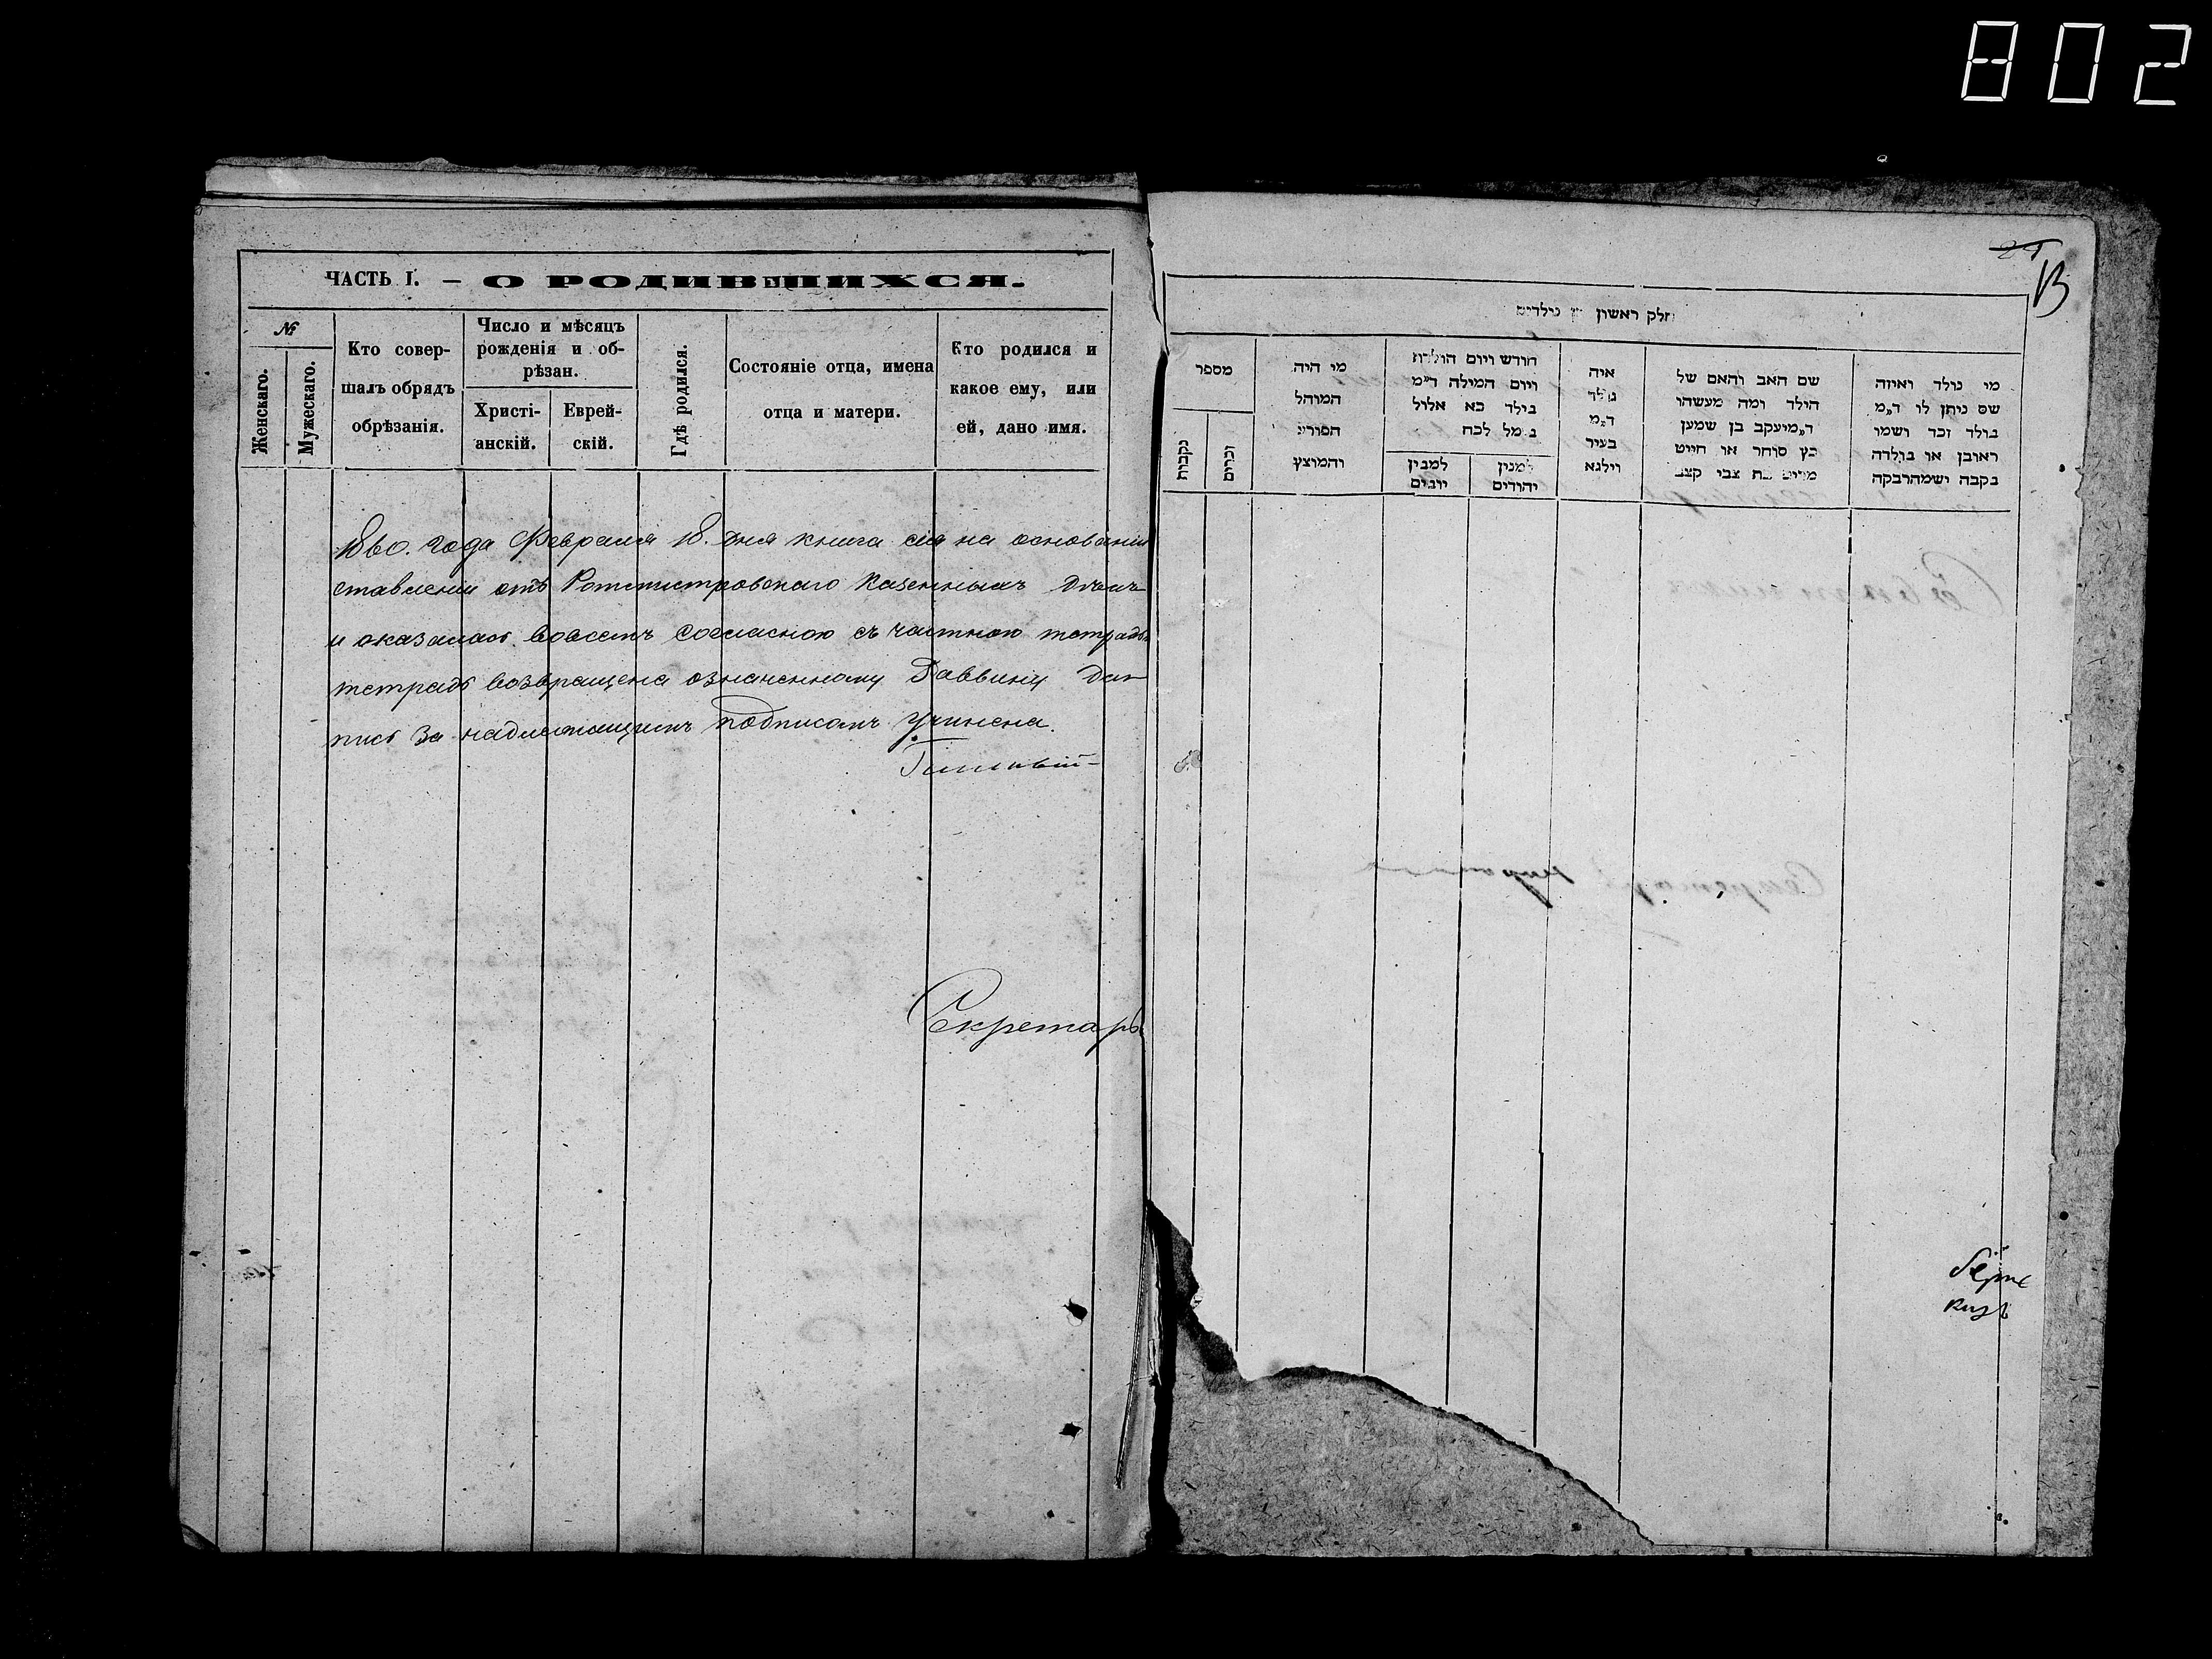 802
ЧАСТЬ I. — О РОДИВШИХСЯ.
№
Женскаго.
Мужескаго.
Кто совер-
шалъ обрядъ
обрѣзанія.
Число и мѣсяцъ
рожденія и об-
рѣзан.
Христі-
анскій.
Еврей-
скій.
Гдѣ родился.
Состояніе отца, имена
отца и матери.
Кто родился и
какое ему, или
ей, дано имя.
1860. года Февраля 18. дня книга сія на основаніи
ставленіи отъ Ротмистровскаго Казеннымъ
и оказалась вовсемъ согласною съ частною тетрадью
тетрадь возвращена означенному Раввину
пись за надлежащимъ подписомъ учинена.
Секретарь
חלק ראשון נילדים
מספר
נקבות
זכרים
מי היה
המוהל
הפורע
והמוצץ
חודש ויום הולדת
ויום המילה ד״מ
בילד כא אלול
נימל לכח
למנין
יונים
למנין
יהודים
איה
נולד
ד״מ
בעיר
וילנא
שם האב והאם של
הילד ומה מעשהו
ד״מ יעקב בן שמען
כץ סוחר או חייט
מרים בת צבי קצב
מי נולד ואיזה
שם ניתן לו ד״מ
נולד זכר ושמו
ראובן או נולדה
נקבה ושמה רבקה